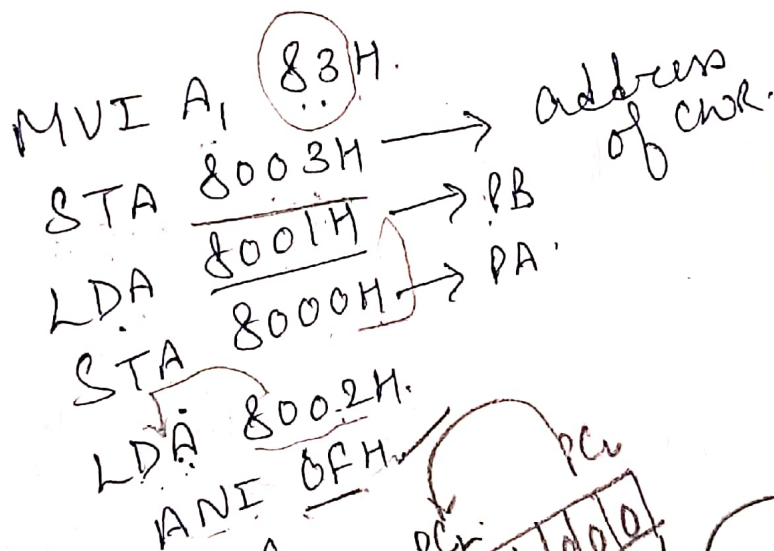 MVI A, 83H.
STA 8003H → address of CWR.
LDA 8001H → PB
STA 8000H → PA.
LDA 8002H.
ANI 0FH
PCu
000